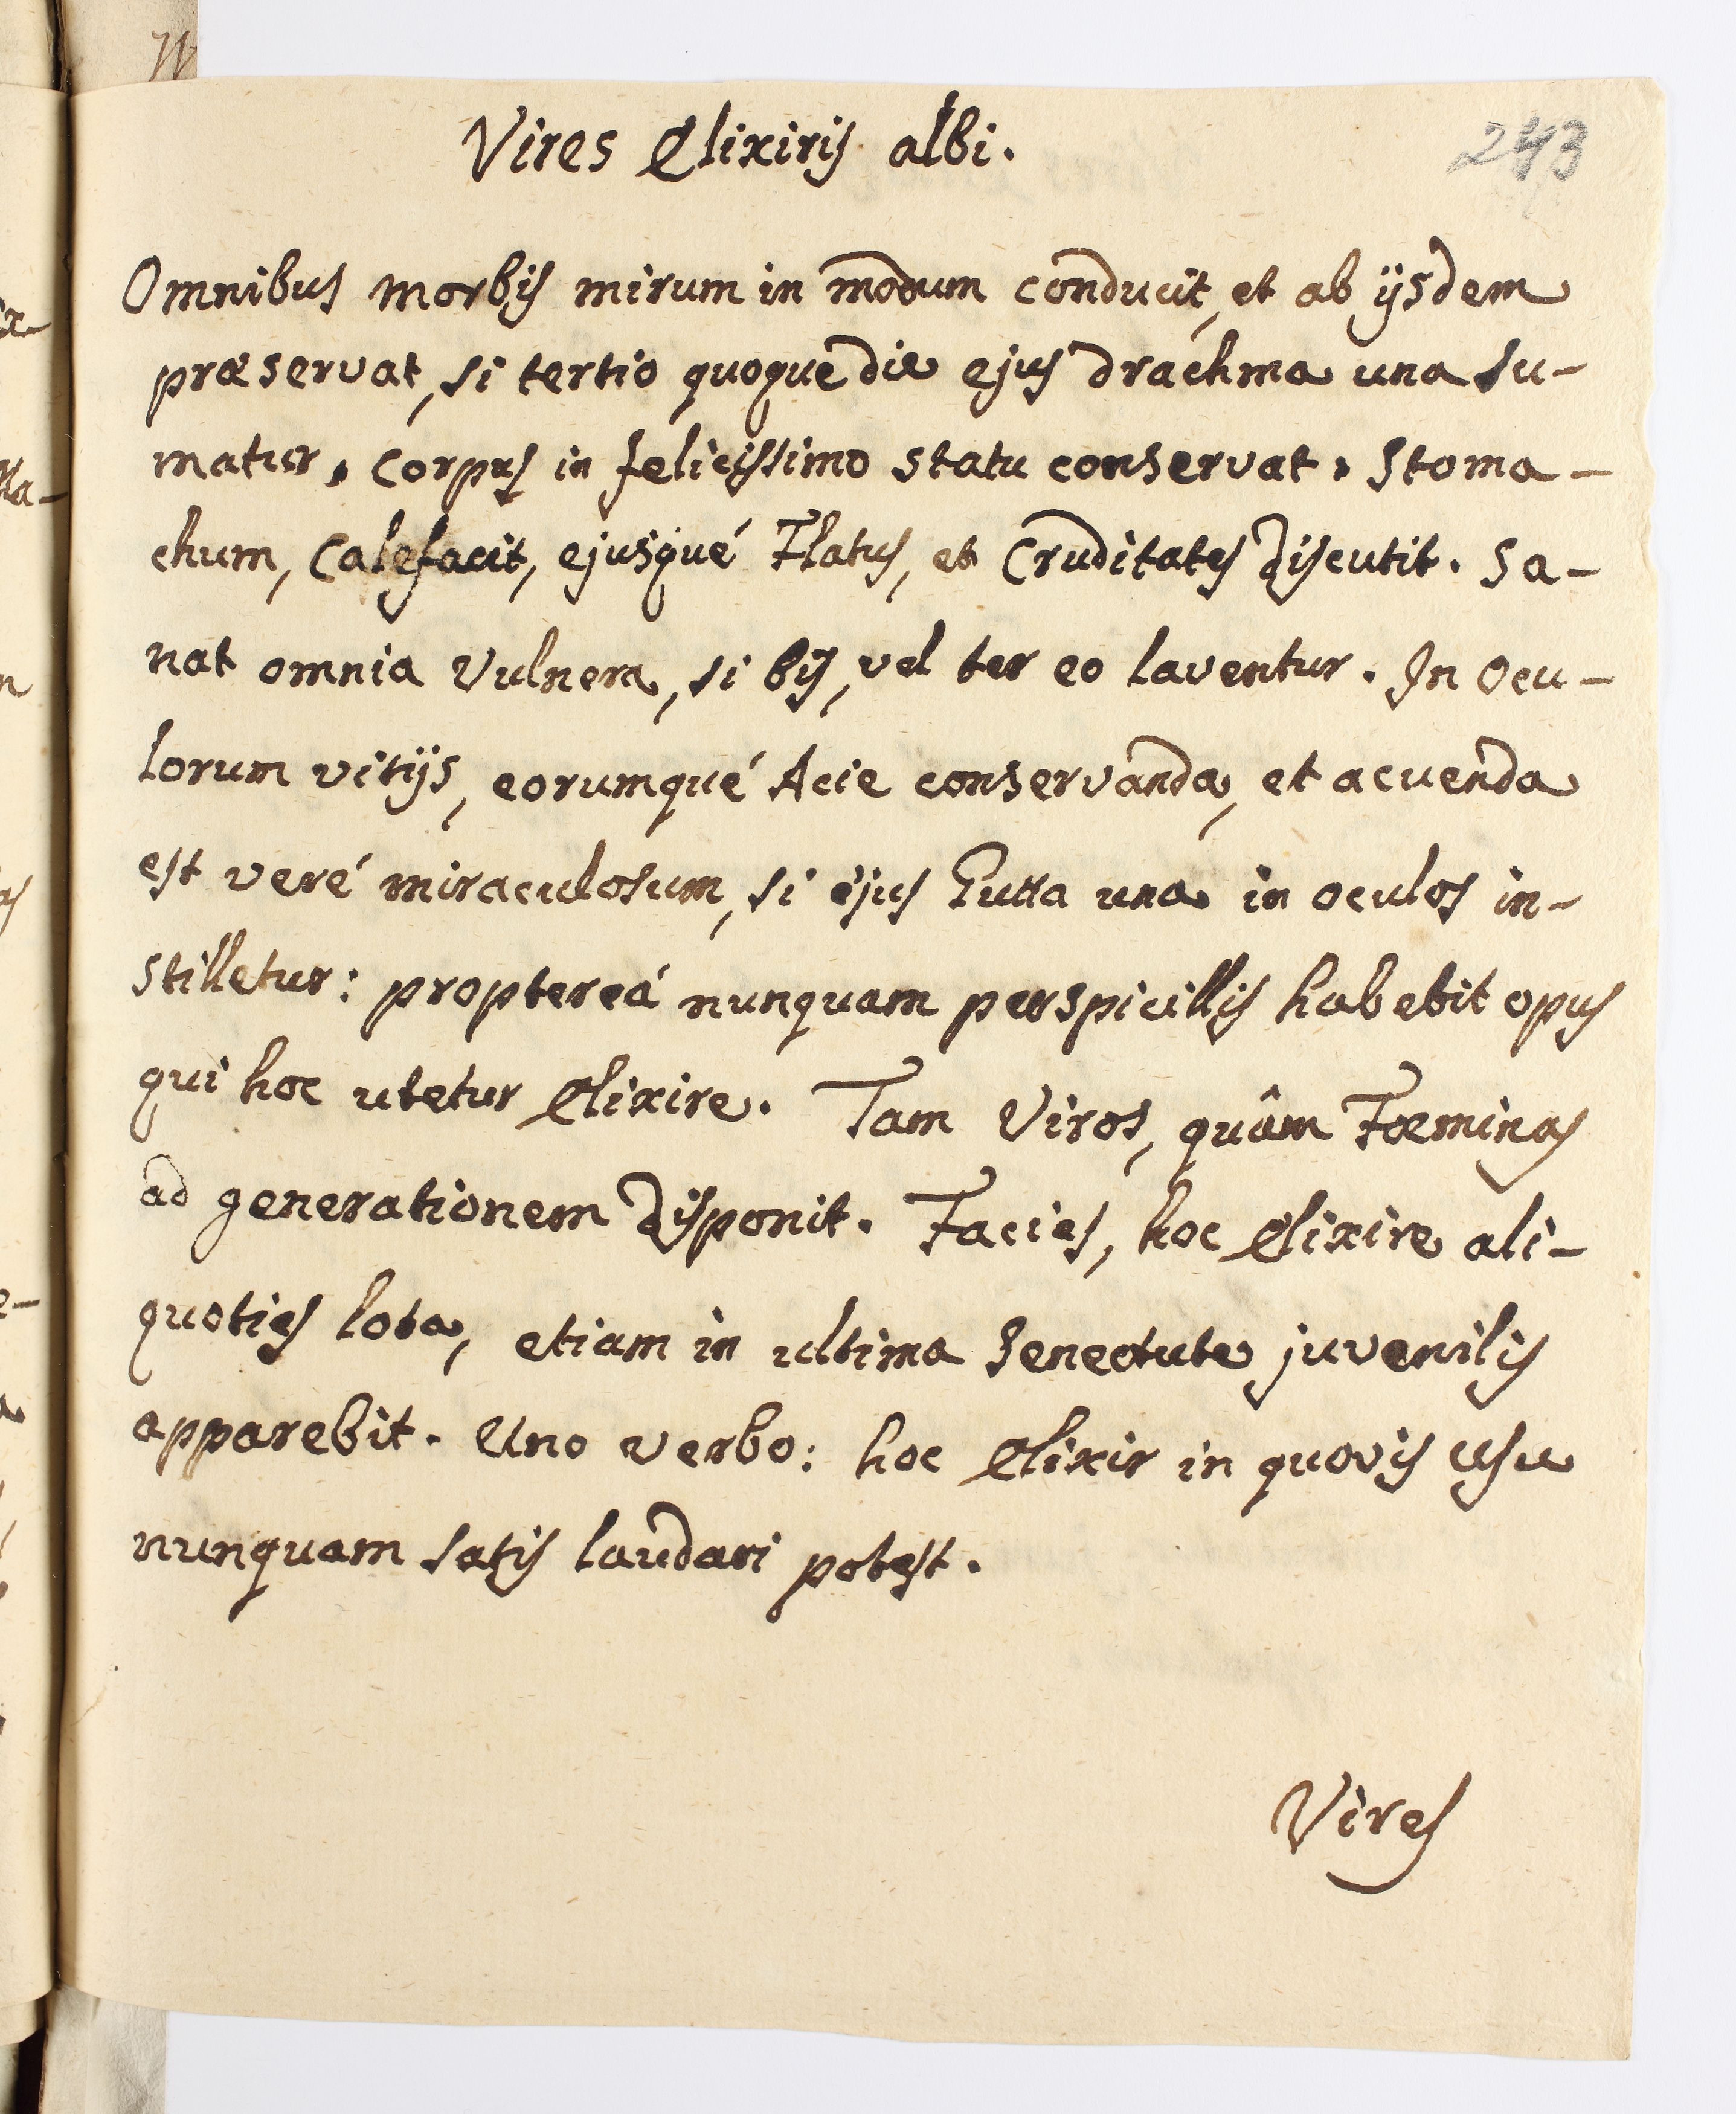 243
Vires Elixiris albi.
Omnibus morbis mirum in modum conducit, et ab ijsdem
præservat, si tertio quoque die ejus drachma una su-
matur, Corpus in felicissimo statu conservat, Stoma-
chum, Calefacit, ejusqué Flatus, et Cruditates discutit. Sa-
nat omnia Vulnera, si bis, vel ter eo laventur. In Ocu-
lorum vitijs, eorumqué Acie conservanda, et acuenda
est veré miraculosum, si ejus Gutta una in oculos in-
stilletur: proptereá nunquam perspicillis habebit opus
qui hoc utetur Elixire. Tam Viros, quâm Fœminas
ad generationem disponit. Facies, hoc Elixire ali-
quoties lota, etiam in ultima Senectute juvenilis
apparebit. Uno verbo: hoc Elixir in quovis usu
nunquam satis laudari potest.
Vires